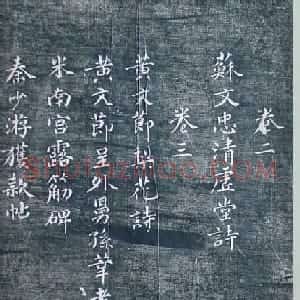 卷二
蘇文忠清虛堂詩
卷三
黃文節梨花詩
黃文節呈外舅孫莘老
米南宮露筋碑
秦少游獲款帖